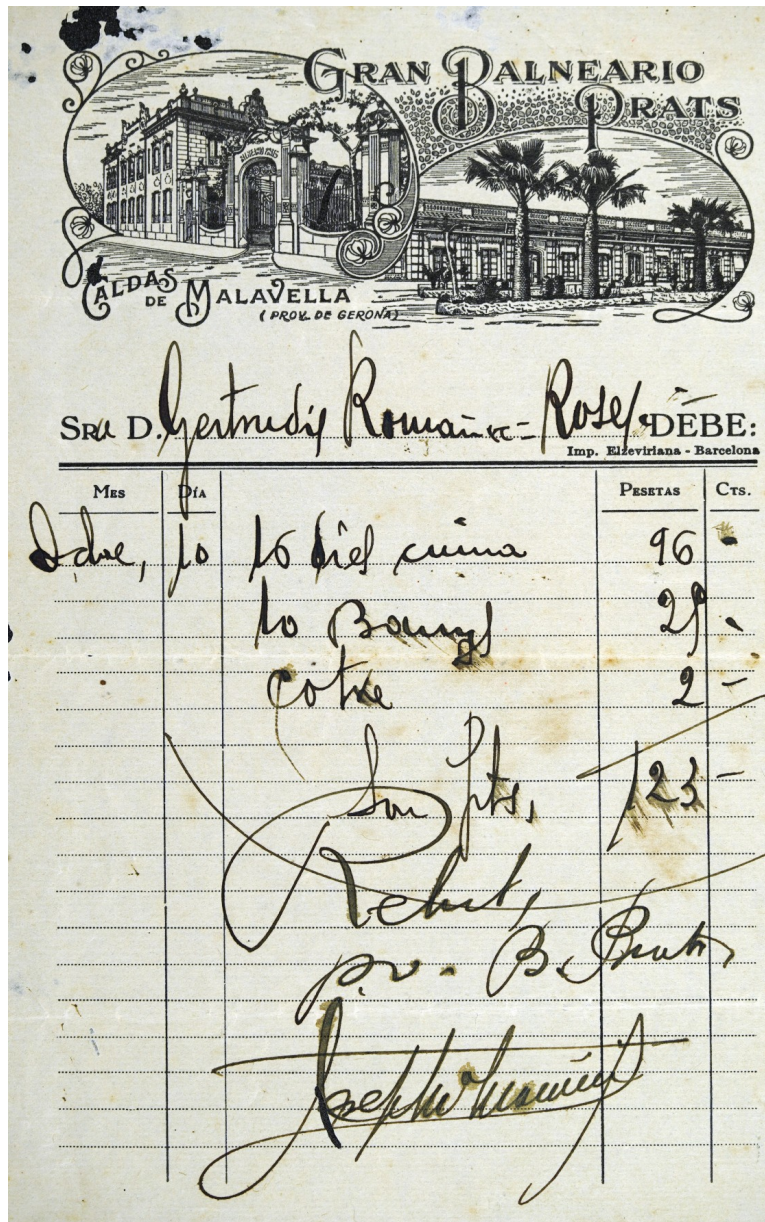 GRAN BALNEARIO
PRATS
BALNEARIO PRATS
CALDAS
DE MALAVELLA
(PROV. DE GERONA)
Sra D. Gertrudis Romañac = Roses DEBE:
Imp. Elzeviriana - Barcelona
MES DÍA PESETAS CTS.
10 16 dies cuina 96
10 Banys 25 -
cotxe 2 -
Son pts, 123 -
Rebut,
p. o. B. Prats,